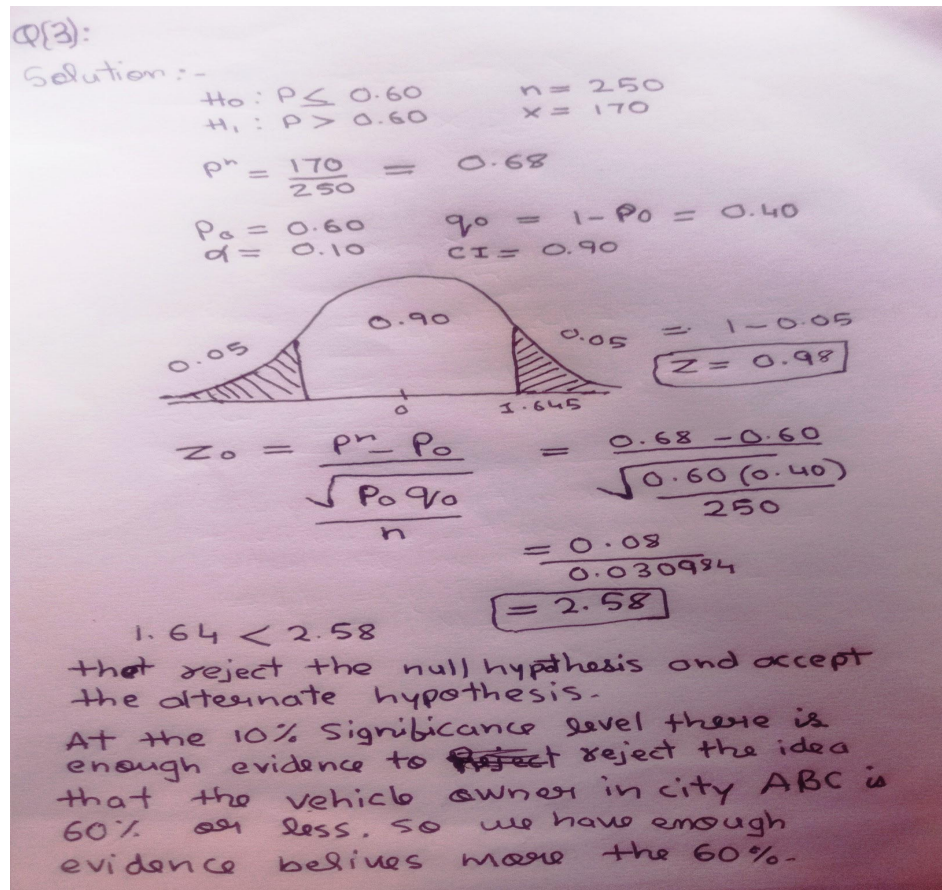 Q(3):
Solution :-
H0 : P ≤ 0.60 n = 250
H1 : P > 0.60 x = 170
p^ = 170/250 = 0.68
Po = 0.60 qo = 1 - Po = 0.40
α = 0.10 CI = 0.90
0.05 0.90 0.05 = 1-0.05
Z = 0.98
0 1.645
Zo = p^ - Po / √ Po qo / n = 0.68 - 0.60 / √ 0.60 (0.40) / 250
= 0.08 / 0.030984
= 2.58
1.64 < 2.58
that reject the null hypothesis and accept
the alternate hypothesis.
At the 10% Significance level there is
enough evidence to reject the idea
that the vehicle owner in city ABC is
60% or less. so we have enough
evidence belives more the 60%.